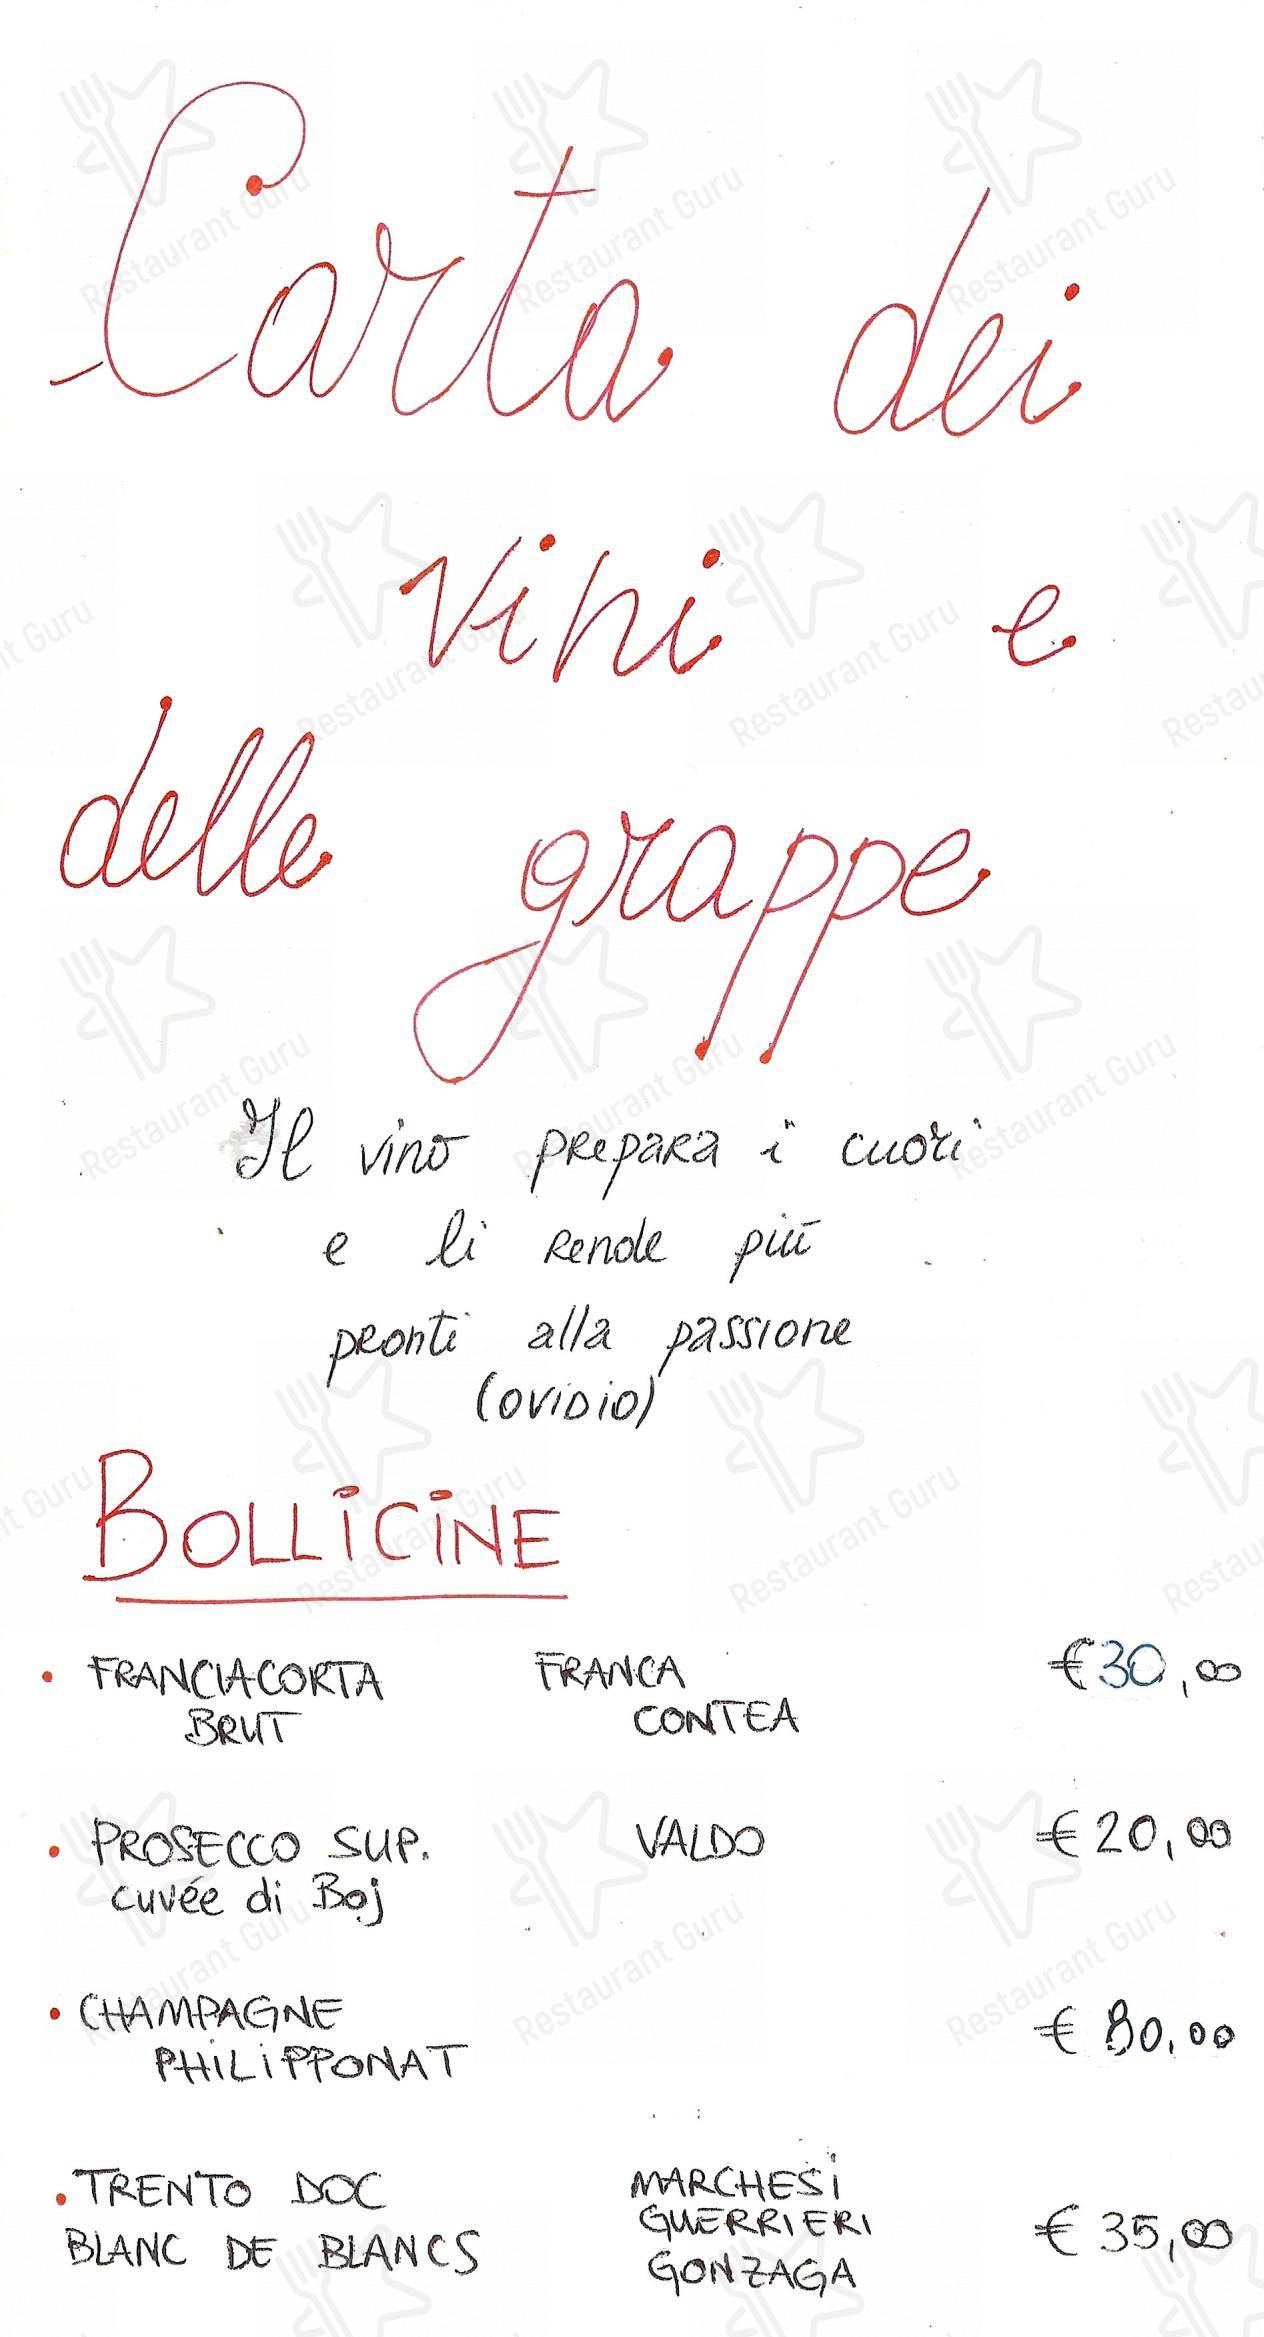 Carta dei
vini e
delle grappe
Il vino prepara i cuori
e li rende più
pronti alla passione
(OVIDIO)
BOLLICINE
• FRANCIACORTA FRANCA €30,00
BRUT CONTEA
• PROSECCO SUP. VALDO € 20,00
cuvée di Boj
• CHAMPAGNE € 80,00
PHILIPPONAT
• TRENTO DOC MARCHESI
GUERRIERI € 35,00
BLANC DE BLANCS GONZAGA
Restaurant Guru